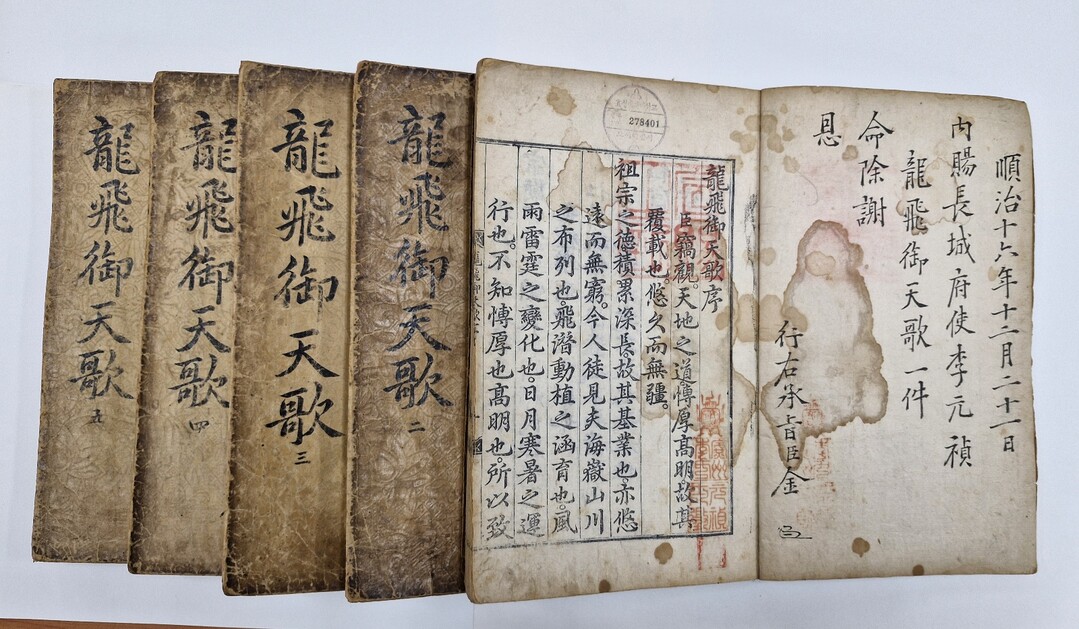 順治十六年十二月二十一日
内賜長城府使李元禎
龍飛御天歌一件
命除謝
恩
行右承旨臣金
278401
龍飛御天歌序
臣竊觀。天地之道。愽厚高明。故其
覆載也。悠久而無疆。
祖宗之德。積累深長。故其基業也。亦悠
遠而無窮。今人徒見夫海嶽山川
之布列也。飛潛動植之涵育也。風
雨雷霆之變化也。日月寒暑之運
行也。不知愽厚也。高明也。所以致
龍飛御天歌 二
龍飛御天歌 三
龍飛御天歌 四
龍飛御天歌 五